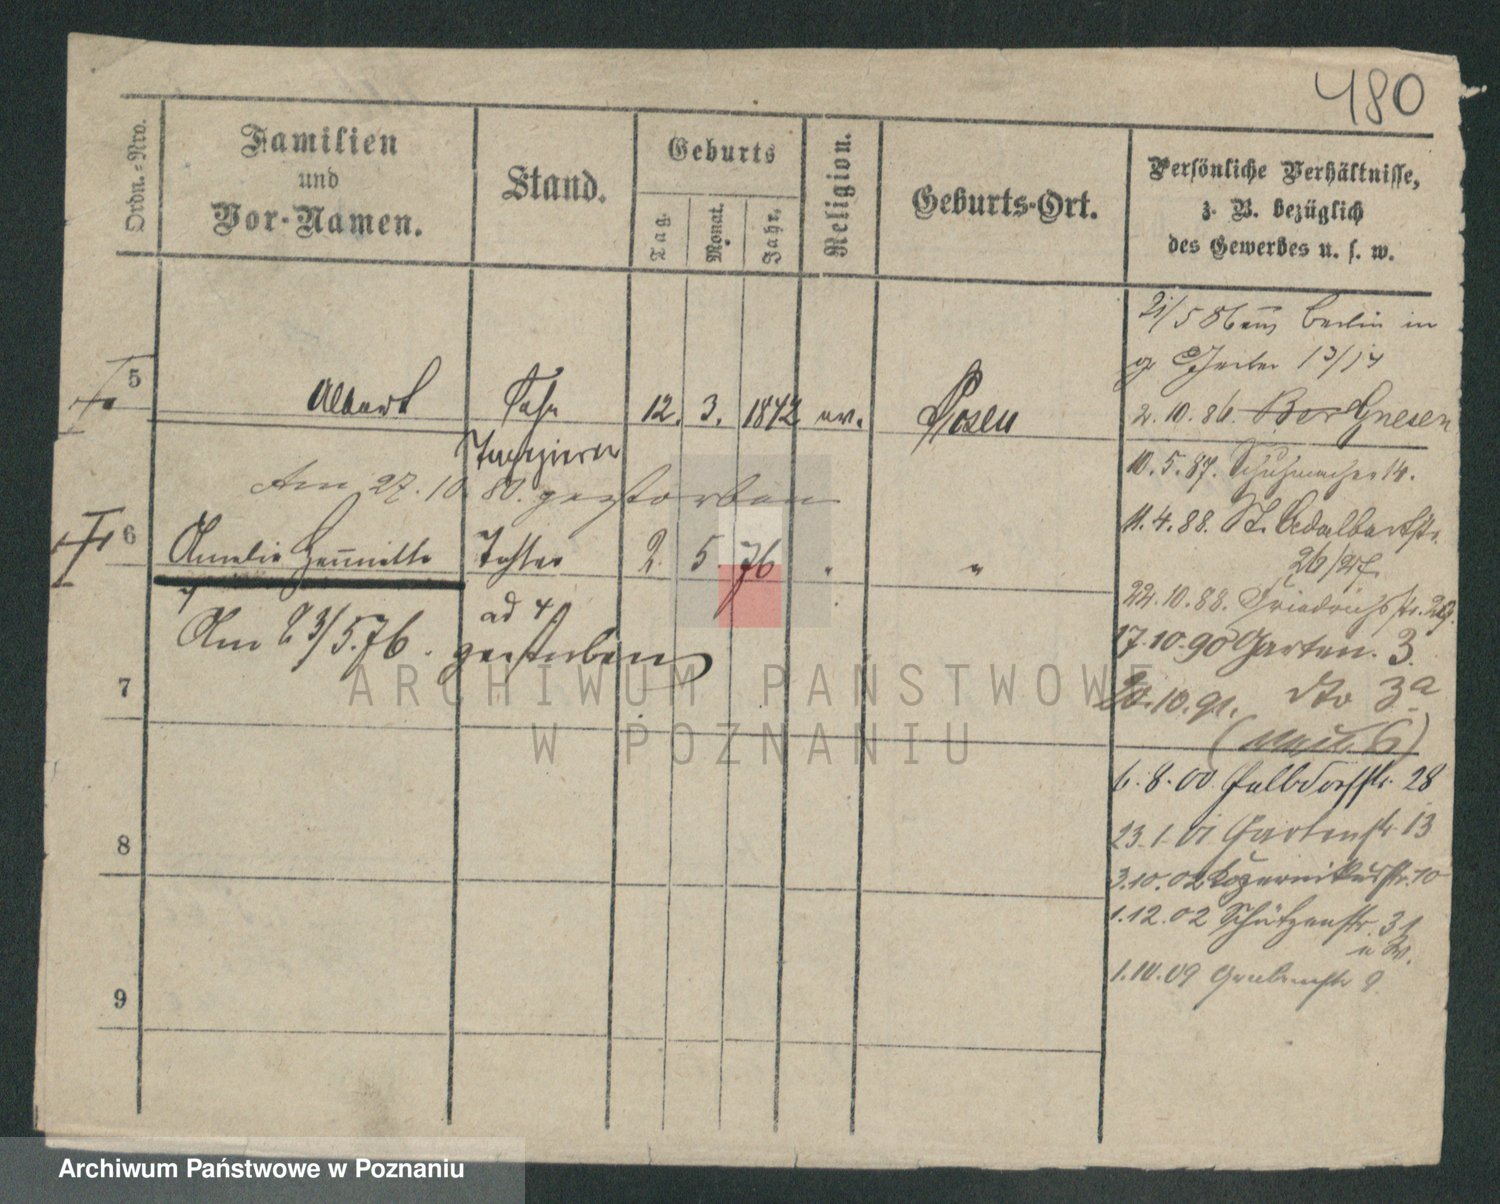 480
Ordn.-Nro.
Familien
und
Vor-Namen.
Stand.
Geburts
Tag.
Monat.
Jahr.
Religion.
Geburts-Ort.
Persönliche Verhältnisse,
z. B. bezüglich
des Gewerbes u. s. w.
5 Albert Sohn 12. 3. 1872 ev. Posen
Tapezierer
Am 27.10.80. gestorben
6 Amelie Henriette Tochter 2. 5 76 " "
ad 4
Am 23/5.76. gestorben
7
8
9
21/5 86 aus Berlin in
13/14
2.10.86. Gnesen
10.5.87. Schuhmacher 14.
11.4.88. St. Adalbertstr.
26/27.
22.10.88. Friedrichsstr.
17.10.90 Garten. 3.
20.10.91. dto 3a
6.8.00 Halbdorfstr. 28
23.1.01 Gartenstr 13
3.10.02 Kopernikusstr. 10
1.12.02 Schützenstr. 31
1.10.09 Grabenstr 9.
ARCHIWUM PAŃSTWOWE
W POZNANIU
Archiwum Państwowe w Poznaniu